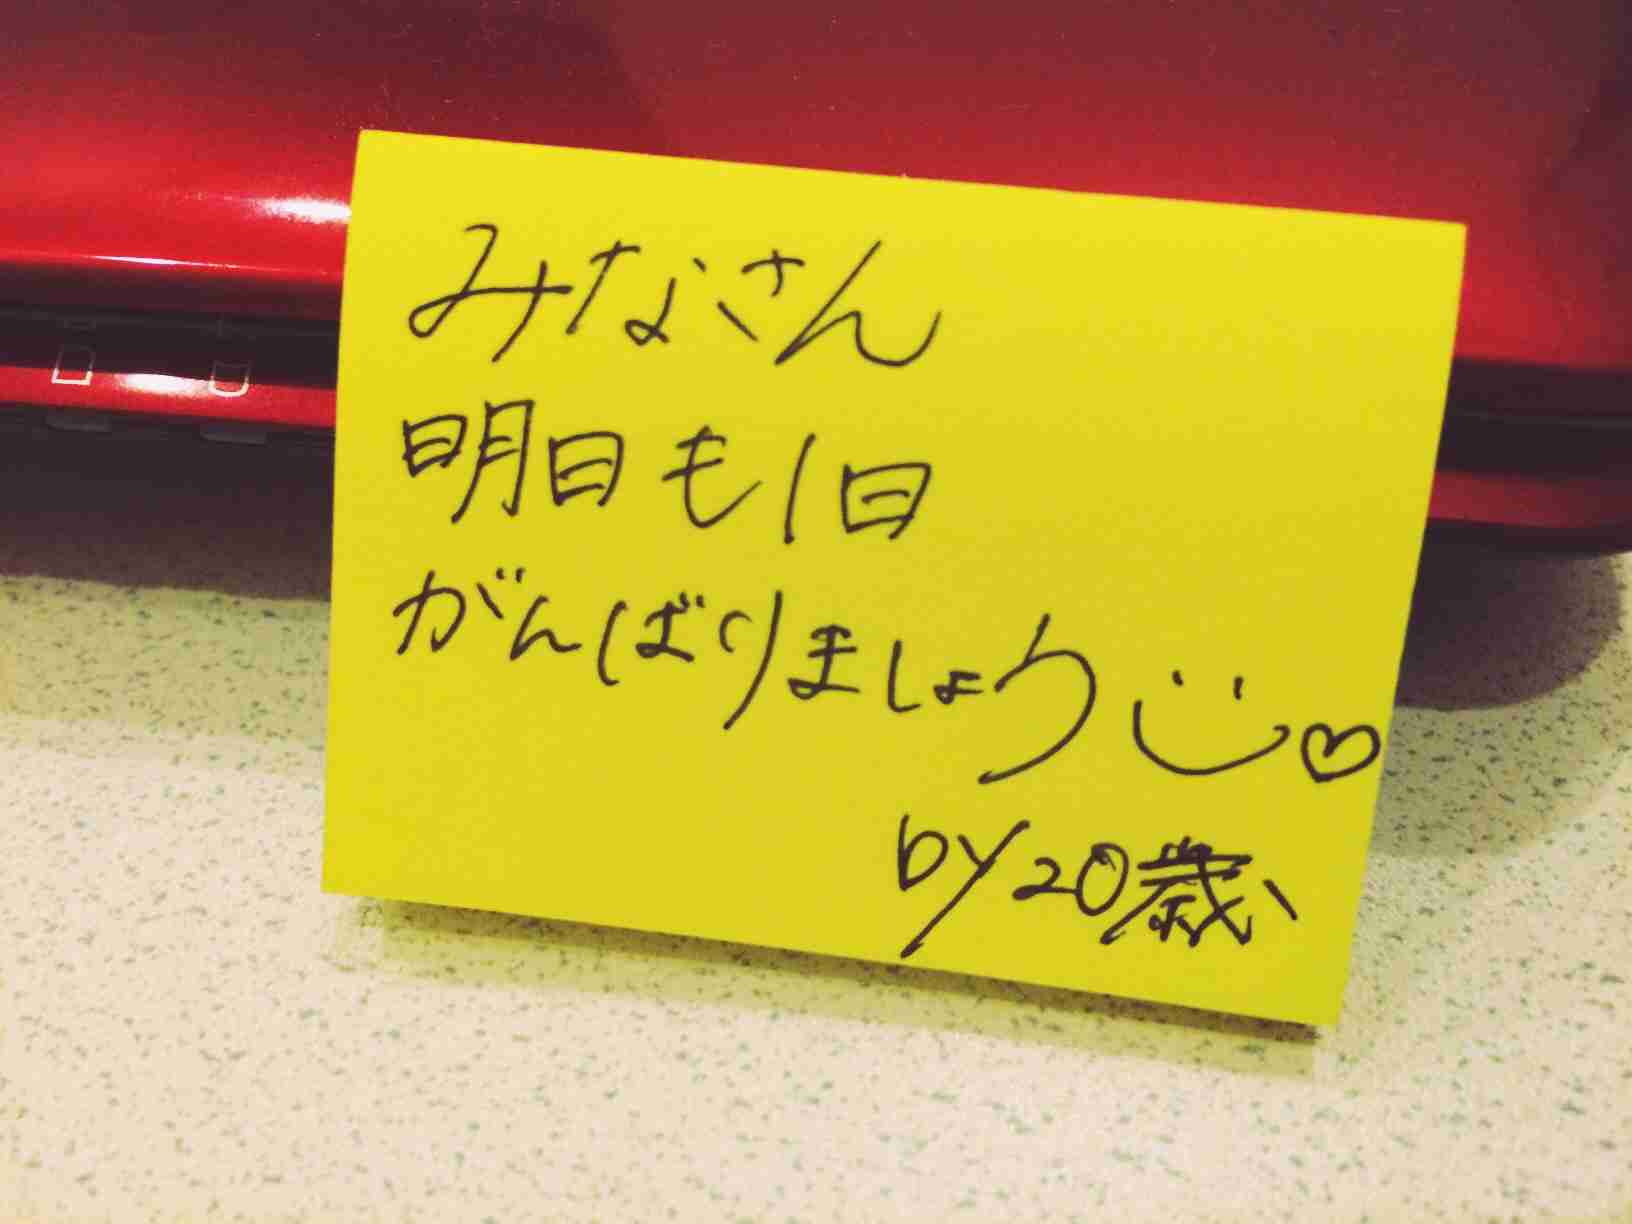 みなさん
明日も1日
がんばりましょう
by 20歳、